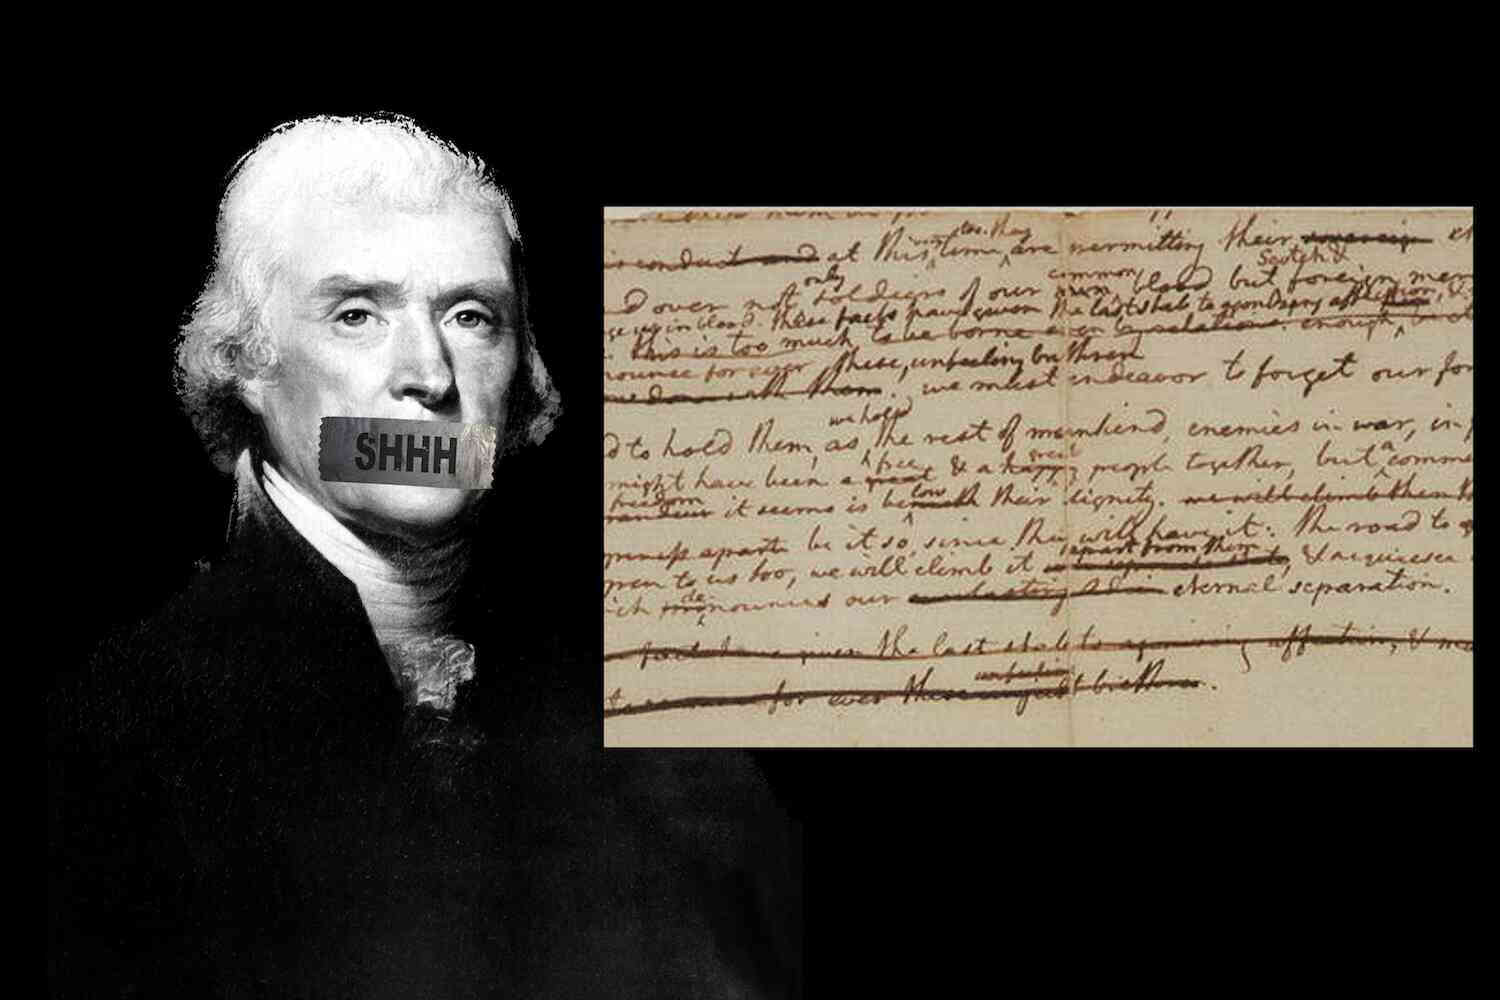 SHHH
conduct and at this very time too, they are permitting their
over not only soldiers of our common blood but Scotch & foreign mer
in blood. these facts have given the last stab to agonizing affection, &
this is too much to be borne even by relations. enough
nounce for ever these unfeeling brethren
with them. we must endeavor to forget our for
d to hold them, as we hold the rest of mankind, enemies in war, in p
might have been a free great & a happy great people together, but a commu
freedom
it seems is low beneath their dignity. we will climb then
apart be it so, since they will have it: the road to
pen to us too, we will climb it apart from them, & acquiesce
ich denounces our everlasting adieu eternal separation.
given the last stab to agonizing affection, &
unfeeling
for ever these unjust brethren.